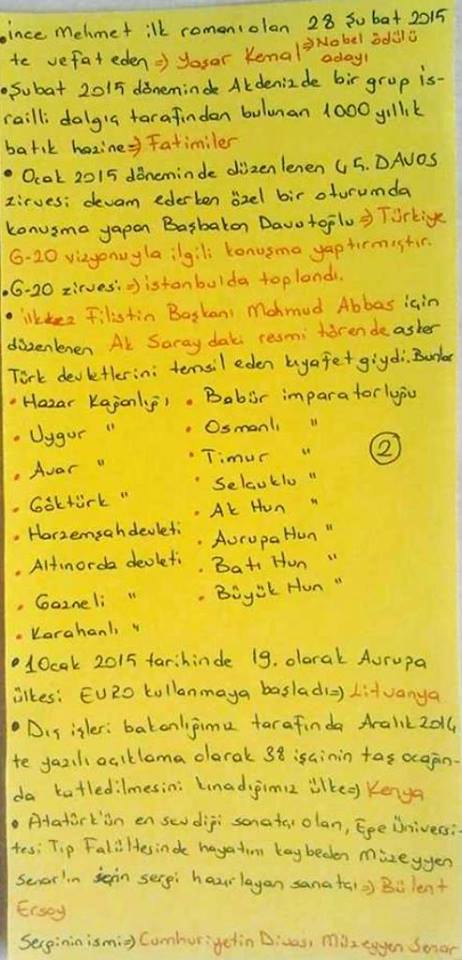 • ince Mehmet ilk romanı olan 28 Şubat 2015
te vefat eden => Yaşar Kemal => Nobel ödülü adayı
• Şubat 2015 döneminde Akdenizde bir grup is-
railli dalgıç tarafından bulunan 1000 yıllık
batık hazine => Fatimiler
• Ocak 2015 döneminde düzenlenen 45. DAVOS
zirvesi devam ederken özel bir oturumda
konuşma yapan Başbakan Davutoğlu => Türkiye
G-20 vizyonuyla ilgili konuşma yaptırmıştır.
• G-20 zirvesi => istanbulda toplandı.
• ilkkez Filistin Başkanı Mahmud Abbas için
düzenlenen Ak Saraydaki resmi törende asker
Türk devletlerini temsil eden kıyafet giydi. Bunlar
• Hazar Kağanlığı • Babür imparatorluğu
• Uygur " • Osmanlı "
• Avar " • Timur "
• Göktürk " • Selçuklu "
• Harzemşah devleti • Ak Hun "
• Altınorda devleti • Avrupa Hun "
• Gazneli " • Batı Hun "
• Karahanlı " • Büyük Hun "
2
• 1 Ocak 2015 tarihinde 19. olarak Avrupa
ülkesi EURO kullanmaya başladı => Lituanya
• Dış işleri bakanlığımız tarafında Aralık 2014
te yazılı açıklama olarak 38 işçinin taş ocağın-
da katledilmesini kınadığımız ülke => Kenya
• Atatürk'ün en sevdiği sanatçı olan, Ege Üniversi-
tesi Tıp Fakültesinde hayatını kaybeden Müzeyyen
Senar'ın için sergi hazırlayan sanatçı => Bülent
Ersoy
Serginin ismi => Cumhuriyetin Divası Müzeyyen Senar